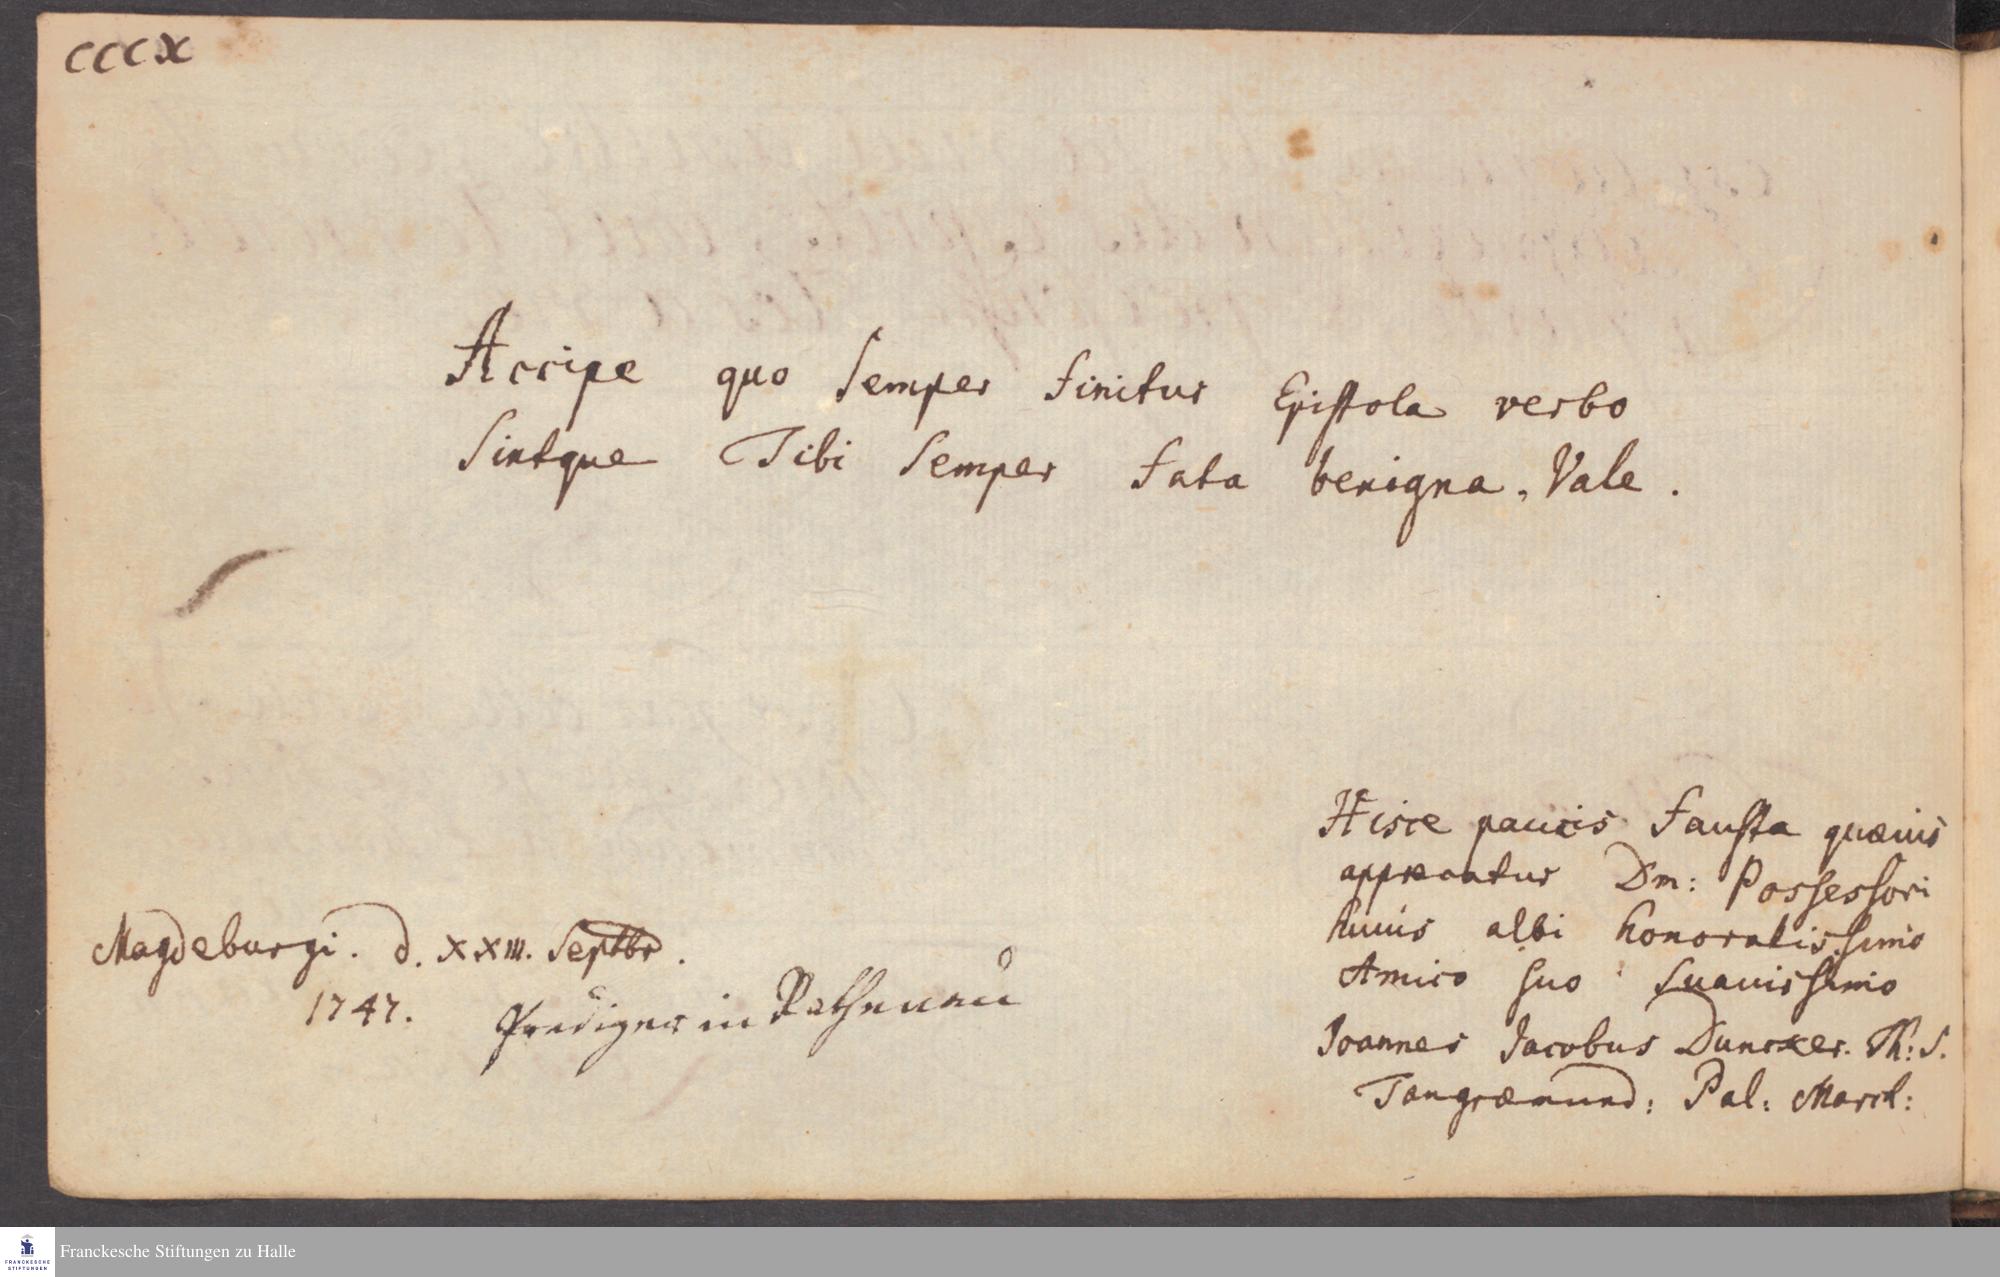 CCCX
Accipe quo semper finitur Epistola verbo
Sintque Tibi semper fata benigna, Vale.
Hisce paucis fausta quævis
apprecatur Dm: Possessori
huius albi honoratissimo
Amico suo suavissimo
Joannes Jacobus Duncker. Th: S.
Tangræmund: Pal: March:
Magdeburgi. d. XXIII. Septbr.
1747.
Prediger in Rathenau
FRANCKESCHE
STIFTUNGEN
Franckesche Stiftungen zu Halle